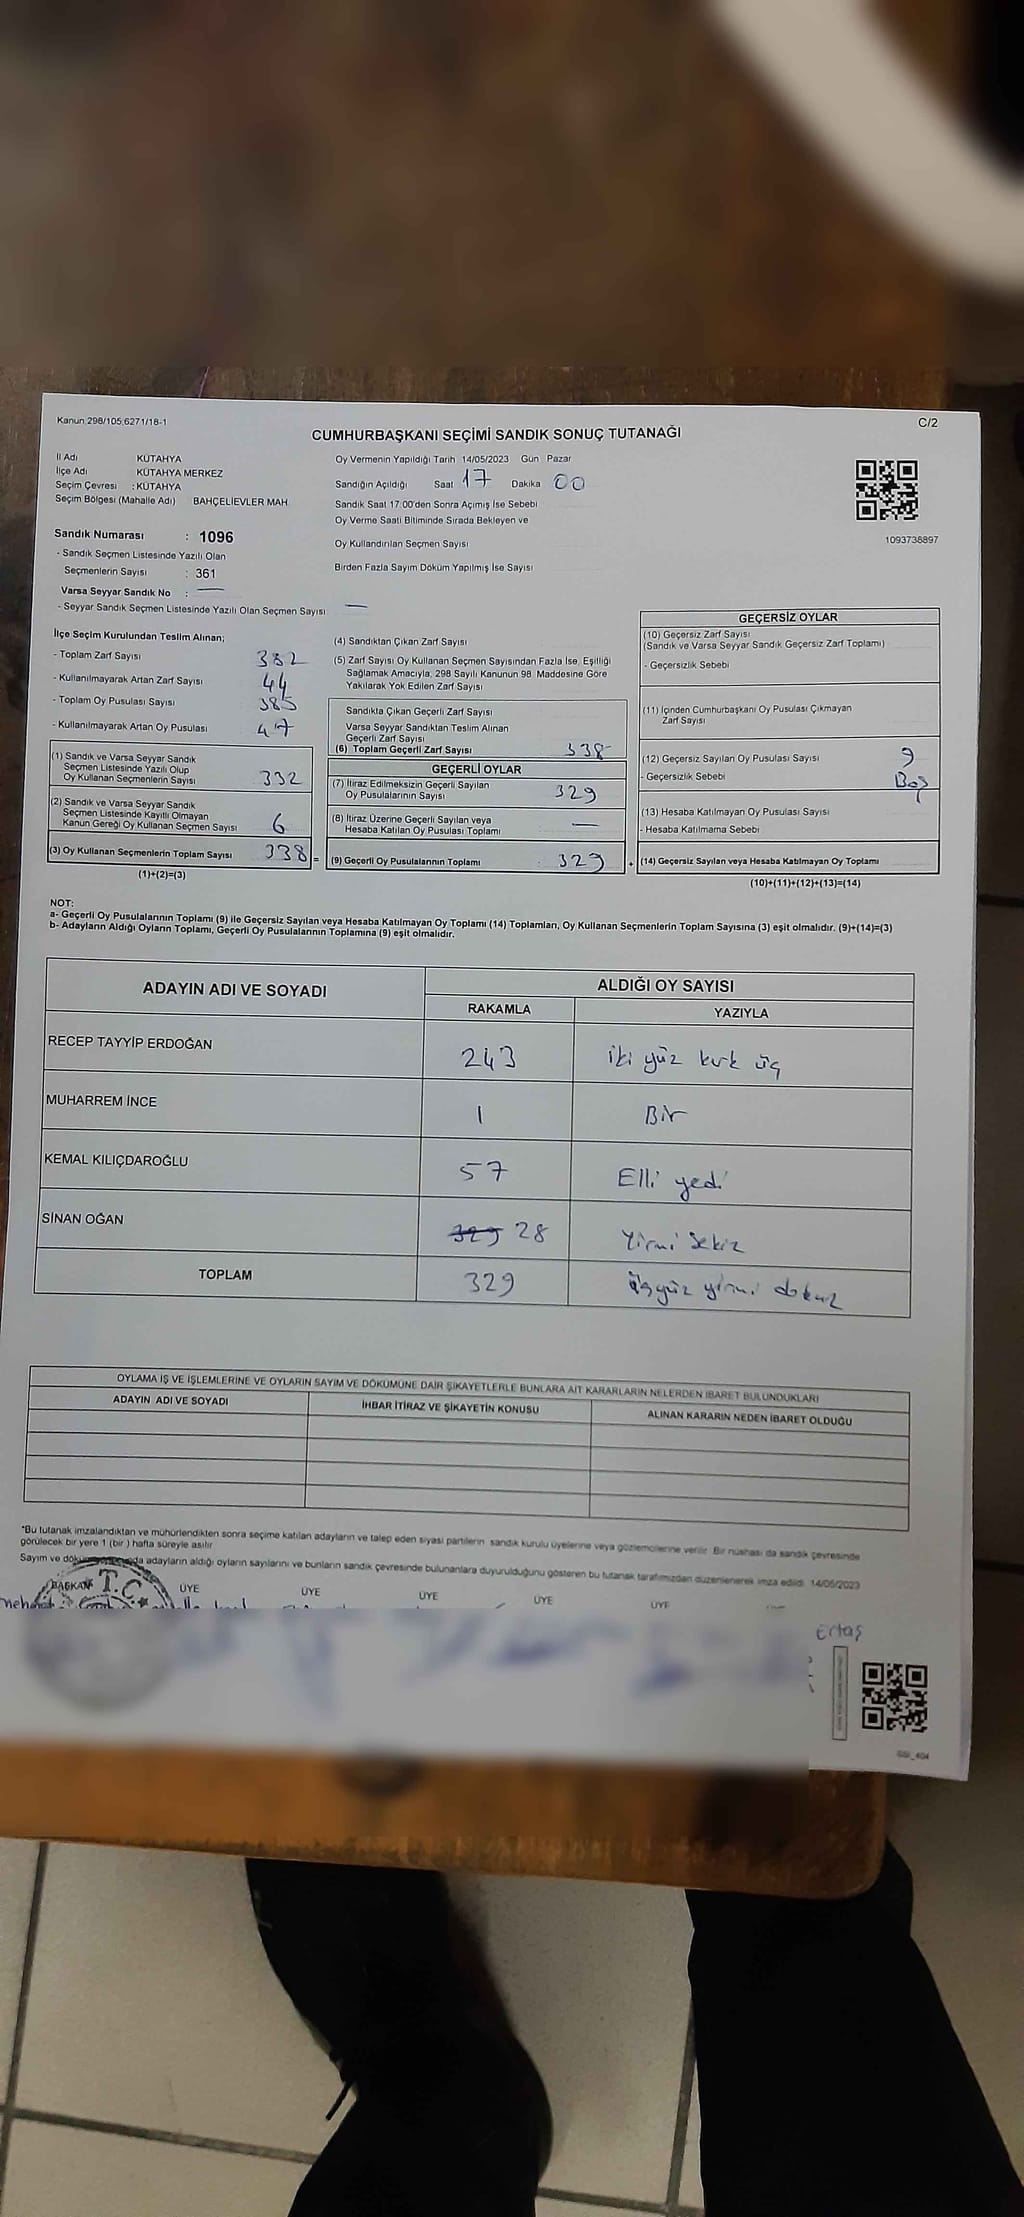 Kanun 298/105;6271/18-1
C/2
CUMHURBAŞKANI SEÇİMİ SANDIK SONUÇ TUTANAĞI
İl Adı KÜTAHYA
İlçe Adı KÜTAHYA MERKEZ
Seçim Çevresi : KÜTAHYA
Seçim Bölgesi (Mahalle Adı) BAHÇELİEVLER MAH.
Oy Vermenin Yapıldığı Tarih 14/05/2023 Gün Pazar
Sandığın Açıldığı Saat 17 Dakika 00
Sandık Saat 17:00'den Sonra Açımış İse Sebebi
Oy Verme Saati Bitiminde Sırada Bekleyen ve
Oy Kullandırılan Seçmen Sayısı
Birden Fazla Sayım Döküm Yapılmış İse Sayısı
1093738897
Sandık Numarası : 1096
- Sandık Seçmen Listesinde Yazılı Olan
Seçmenlerin Sayısı : 361
Varsa Seyyar Sandık No : —
- Seyyar Sandık Seçmen Listesinde Yazılı Olan Seçmen Sayısı —
İlçe Seçim Kurulundan Teslim Alınan;
- Toplam Zarf Sayısı 382
- Kullanılmayarak Artan Zarf Sayısı 44
- Toplam Oy Pusulası Sayısı 385
- Kullanılmayarak Artan Oy Pusulası 47
(1) Sandık ve Varsa Seyyar Sandık
Seçmen Listesinde Yazılı Olup
Oy Kullanan Seçmenlerin Sayısı 332
(2) Sandık ve Varsa Seyyar Sandık
Seçmen Listesinde Kayıtlı Olmayan
Kanun Gereği Oy Kullanan Seçmen Sayısı 6
(3) Oy Kullanan Seçmenlerin Toplam Sayısı 338 =
(1)+(2)=(3)
(4) Sandıktan Çıkan Zarf Sayısı
(5) Zarf Sayısı Oy Kullanan Seçmen Sayısından Fazla İse, Eşitliği
Sağlamak Amacıyla, 298 Sayılı Kanunun 98. Maddesine Göre
Yakılarak Yok Edilen Zarf Sayısı
Sandıkta Çıkan Geçerli Zarf Sayısı
Varsa Seyyar Sandıktan Teslim Alınan
Geçerli Zarf Sayısı
(6) Toplam Geçerli Zarf Sayısı 338
GEÇERLİ OYLAR
(7) İtiraz Edilmeksizin Geçerli Sayılan
Oy Pusulalarının Sayısı 329
(8) İtiraz Üzerine Geçerli Sayılan veya
Hesaba Katılan Oy Pusulası Toplamı —
(9) Geçerli Oy Pusulalarının Toplamı : 329 +
GEÇERSİZ OYLAR
(10) Geçersiz Zarf Sayısı
(Sandık ve Varsa Seyyar Sandık Geçersiz Zarf Toplamı)
- Geçersizlik Sebebi
(11) İçinden Cumhurbaşkanı Oy Pusulası Çıkmayan
Zarf Sayısı
(12) Geçersiz Sayılan Oy Pusulası Sayısı 9
- Geçersizlik Sebebi Boş
(13) Hesaba Katılmayan Oy Pusulası Sayısı
- Hesaba Katılmama Sebebi
(14) Geçersiz Sayılan veya Hesaba Katılmayan Oy Toplamı
(10)+(11)+(12)+(13)=(14)
NOT:
a- Geçerli Oy Pusulalarının Toplamı (9) ile Geçersiz Sayılan veya Hesaba Katılmayan Oy Toplamı (14) Toplamları, Oy Kullanan Seçmenlerin Toplam Sayısına (3) eşit olmalıdır. (9)+(14)=(3)
b- Adayların Aldığı Oyların Toplamı, Geçerli Oy Pusulalarının Toplamına (9) eşit olmalıdır.
ADAYIN ADI VE SOYADI ALDIĞI OY SAYISI
RAKAMLA YAZIYLA
RECEP TAYYİP ERDOĞAN 243 iki yüz kırk üç
MUHARREM İNCE 1 Bir
KEMAL KILIÇDAROĞLU 57 Elli yedi
SİNAN OĞAN 329 28 Yirmi Sekiz
TOPLAM 329 üçyüz yirmi dokuz
OYLAMA İŞ VE İŞLEMLERİNE VE OYLARIN SAYIM VE DÖKÜMÜNE DAİR ŞİKAYETLERLE BUNLARA AİT KARARLARIN NELERDEN İBARET BULUNDUKLARI
ADAYIN ADI VE SOYADI İHBAR İTİRAZ VE ŞİKAYETİN KONUSU ALINAN KARARIN NEDEN İBARET OLDUĞU
*Bu tutanak imzalandıktan ve mühürlendikten sonra seçime katılan adayların ve talep eden siyasi partilerin sandık kurulu üyelerine veya gözlemcilerine verilir. Bir nüshası da sandık çevresinde
görülecek bir yere 1 (bir) hafta süreyle asılır
Sayım ve adayların aldığı oyların sayılarını ve bunların sandık çevresinde bulunanlara duyurulduğunu gösteren bu tutanak tarafımızdan düzenlenerek imza edildi. 14/05/2023
BAŞKAN T.C. ÜYE ÜYE ÜYE ÜYE ÜYE
Ertaş
GSI_404